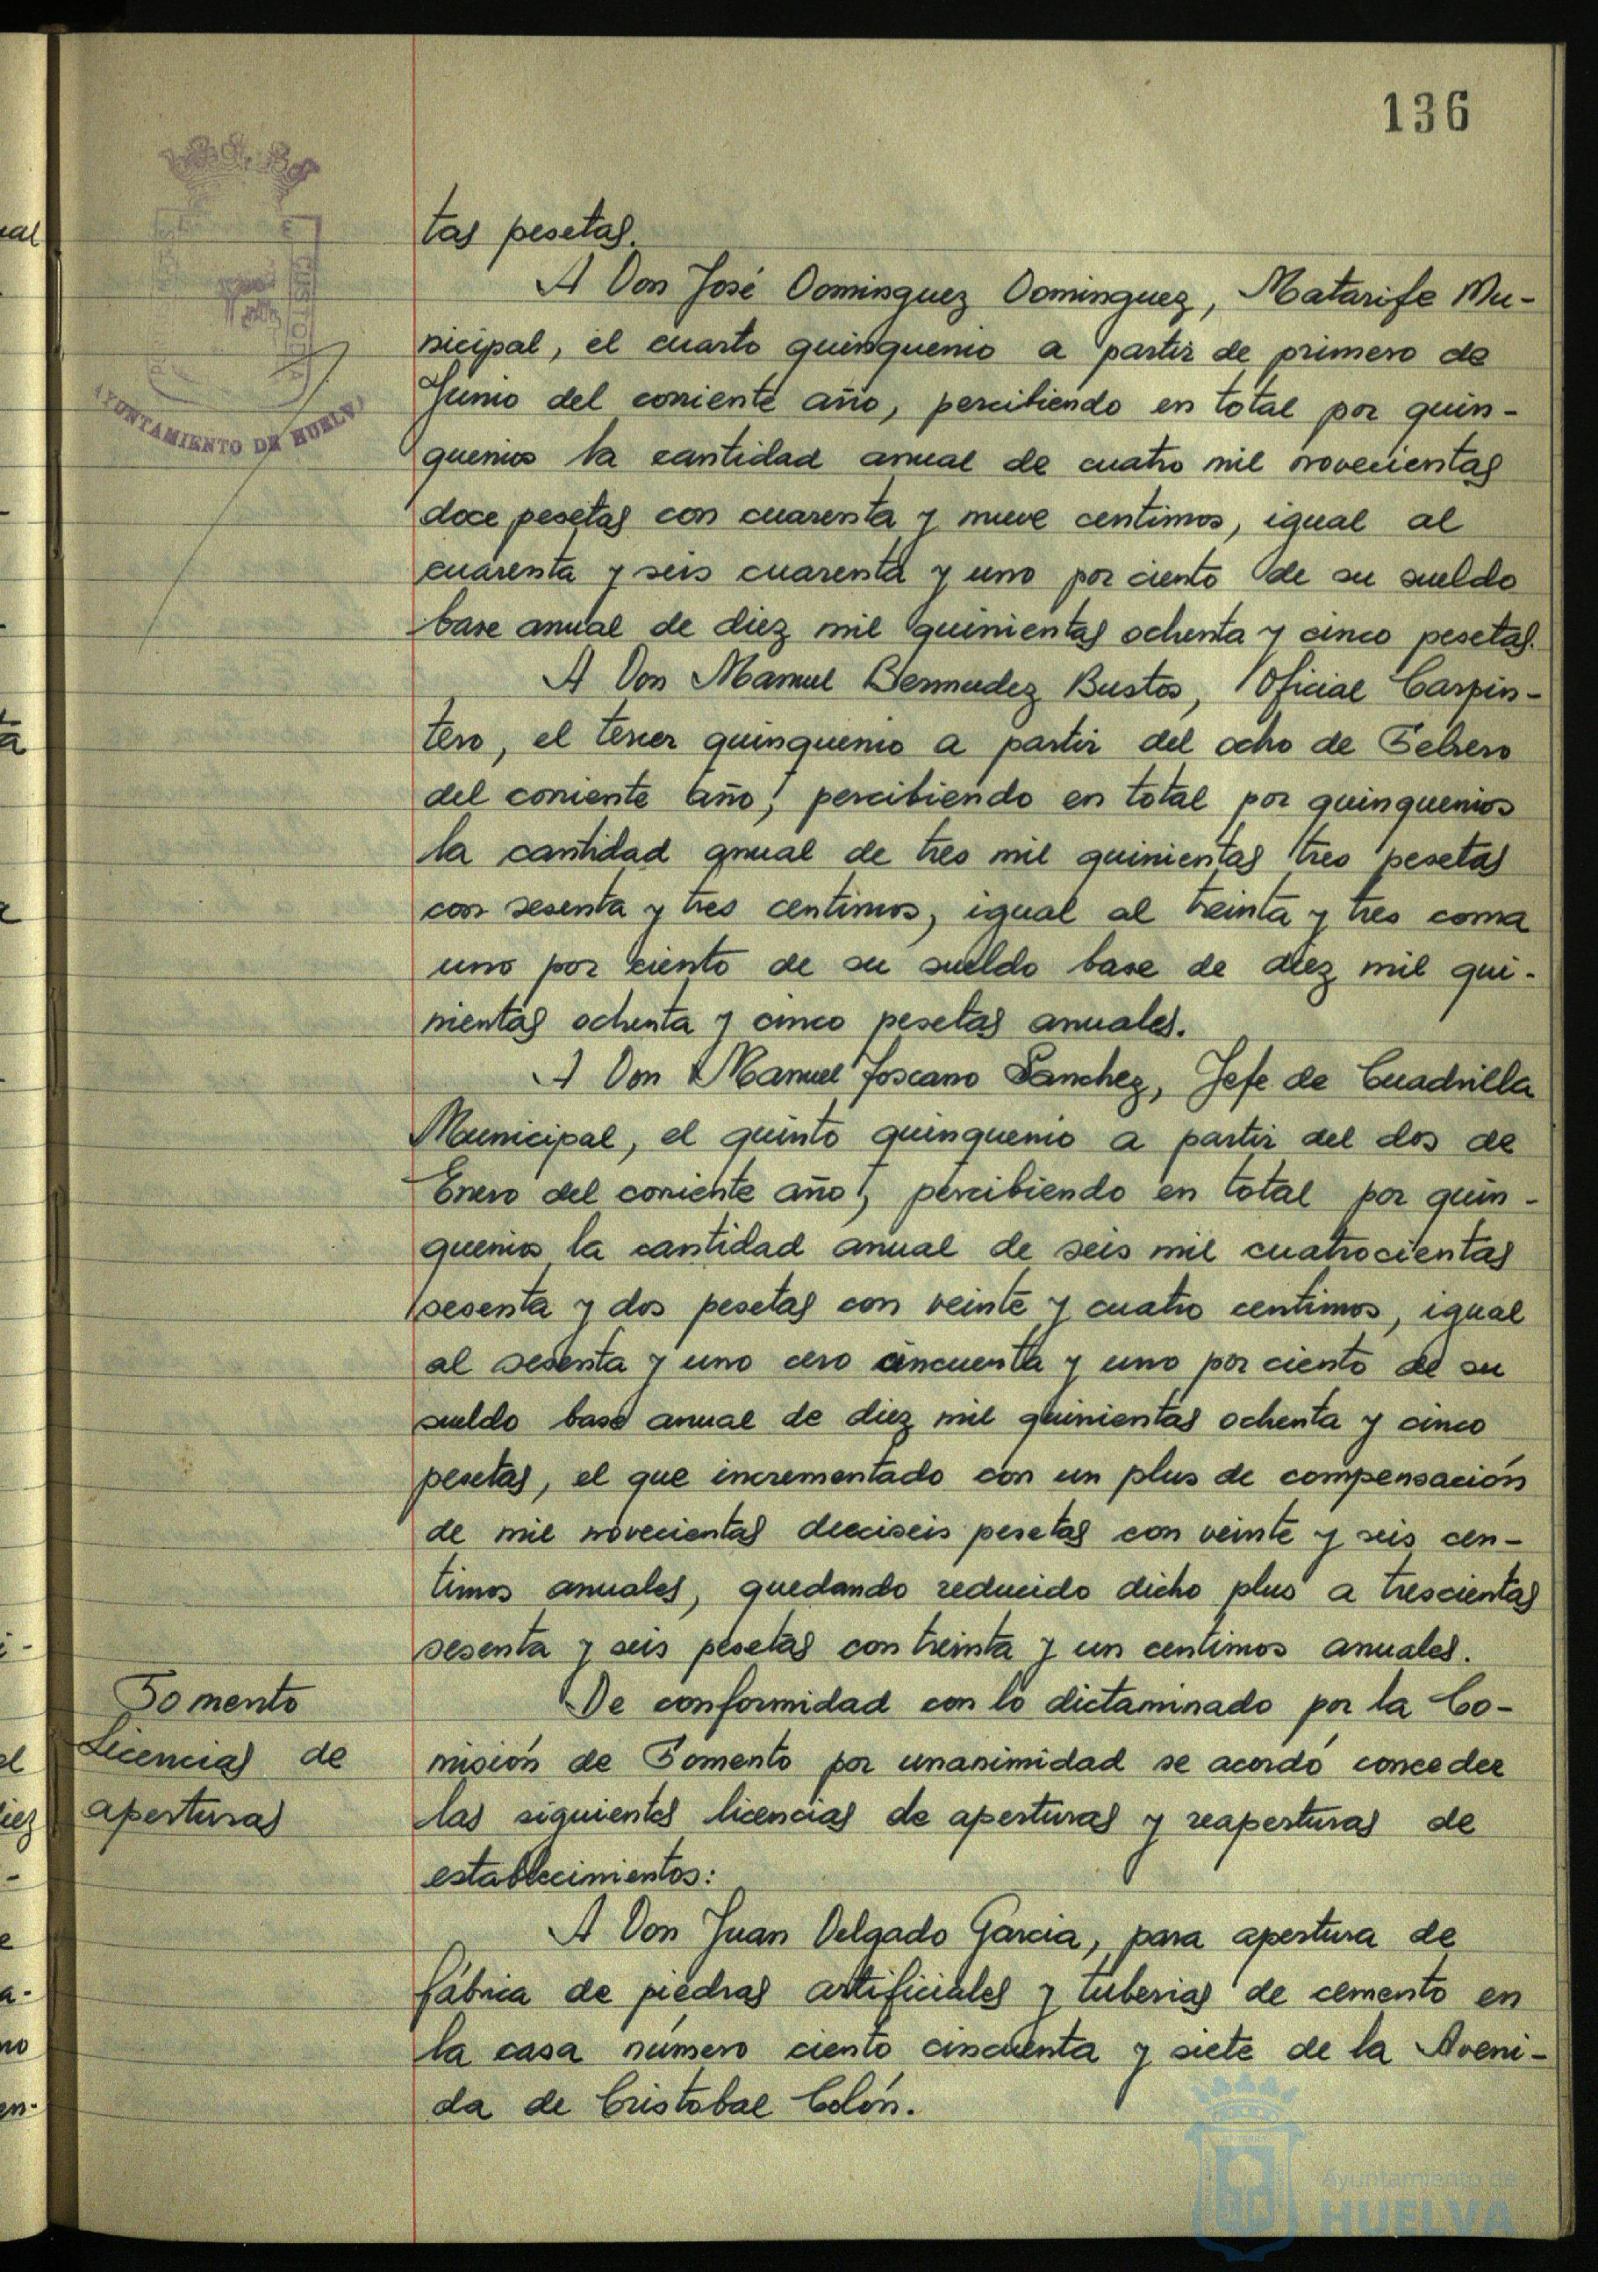 136
tas pesetas.
A Don José Dominguez Dominguez, Matarife Mu-
nicipal, el cuarto quinquenio a partir de primero de
Junio del corriente año, percibiendo en total por quin-
quenios la cantidad anual de cuatro mil novecientas
doce pesetas con cuarenta y nueve centimos, igual al
cuarenta y seis cuarenta y uno por ciento de su sueldo
base anual de diez mil quinientas ochenta y cinco pesetas.
A Don Manuel Bermudez Bustos, Oficial Carpin-
tero, el tercer quinquenio a partir del ocho de Febrero
del corriente año, percibiendo en total por quinquenios
la cantidad anual de tres mil quinientas tres pesetas
con sesenta y tres centimos, igual al treinta y tres coma
uno por ciento de su sueldo base de diez mil qui-
nientas ochenta y cinco pesetas anuales.
A Don Manuel Toscano Sanchez, Jefe de Cuadrilla
Municipal, el quinto quinquenio a partir del dos de
Enero del corriente año, percibiendo en total por quin-
quenios la cantidad anual de seis mil cuatrocientas
sesenta y dos pesetas con veinte y cuatro centimos, igual
al sesenta y uno cero cincuenta y uno por ciento de su
sueldo base anual de diez mil quinientas ochenta y cinco
pesetas, el que incrementado con un plus de compensación
de mil novecientas dieciseis pesetas con veinte y seis cen-
timos anuales, quedando reducido dicho plus a trescientas
sesenta y seis pesetas con treinta y un centimos anuales.
Fomento
Licencias de
aperturas
De conformidad con lo dictaminado por la Co-
misión de Fomento por unanimidad se acordó conceder
las siguientes licencias de aperturas y reaperturas de
establecimientos:
A Don Juan Delgado Garcia, para apertura de
fábrica de piedras artificiales y tuberias de cemento en
la casa número ciento cincuenta y siete de la Aveni-
da de Cristobal Colón.
AYUNTAMIENTO DE HUELVA
CUSTODIA
Ayuntamiento de
HUELVA